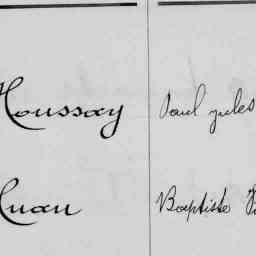 Houssay Paul jules
Huau Baptiste